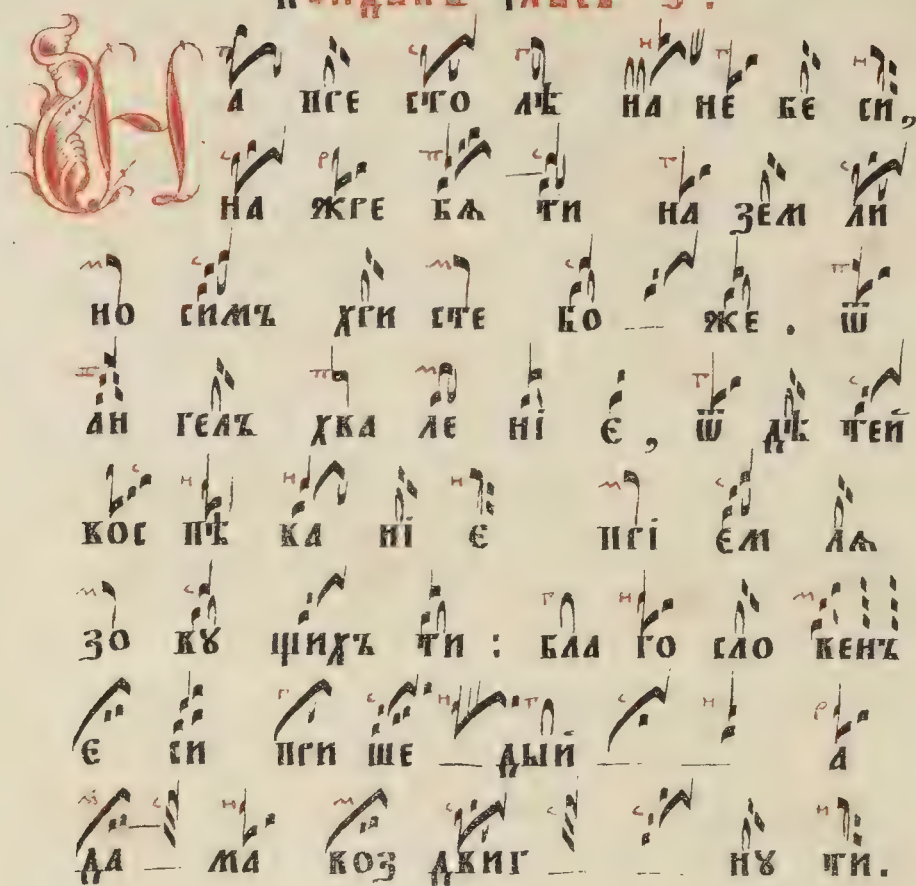 Кондакъ гласъ ѕ.
На пре сто лѣ на не бе си,
на жре бѧ ти на зем ли
но симъ хри сте бо — же . ѿ
ан гелъ хва ле ні є, ѿ дѣ тей
вос пѣ ва ні є прі єм лѧ
зо вꙋ щихъ ти : бла го сло венъ
є си при ше — дый — — а
да — ма воз двиг — — нꙋ ти.